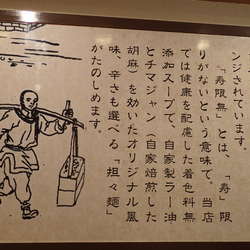 ンジされています。
「寿限無」とは、「寿」限
りがないという意味で、当店
では健康を配慮した着色料無
添加スープで、自家製ラー油
とチマジャン(自家焙煎した
胡麻)を効いたオリジナル風
味、辛さも選べる「坦々麺」
がたのしめます。